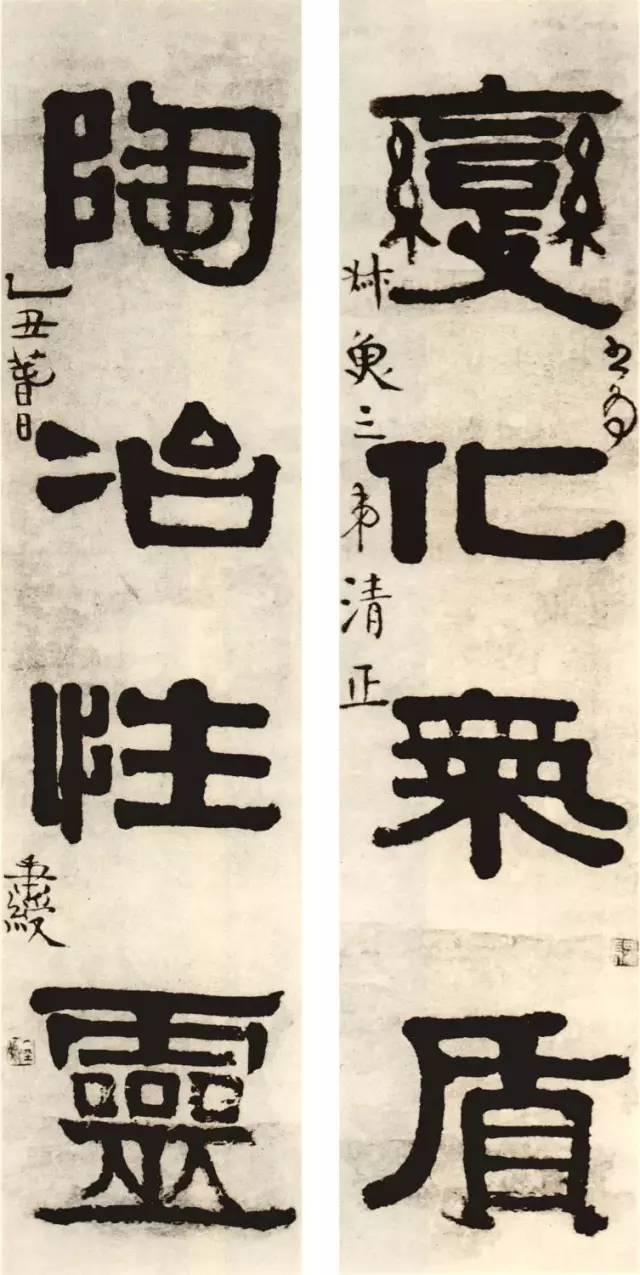 書為
變化氣質
三弟清正
陶冶性靈
乙丑萅日
秉綬